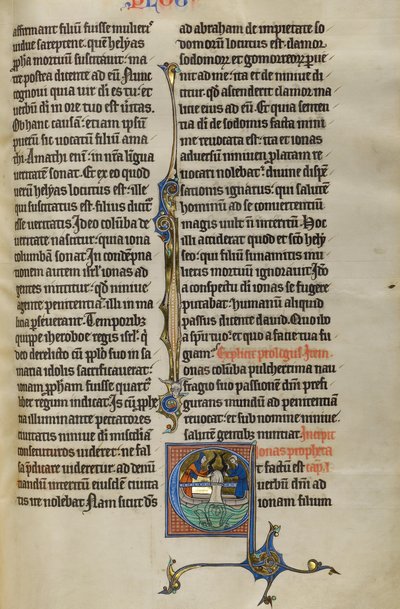 PLOG
affirmant filiū fuisse mulieris
uidue sareptene. quē helyas
ꝓpha mortuū suscitauit. ma
tre postea dicente ad eū. Nunc
cognoui quia uir dī es tu. et
uerbū dī in ore tuo est uitatis.
Ob hanc causā. etiam ipsū
puerū sic uocatū filiū ama
thi. Amathi enī in nrā lingua
ueritatē sonat. Et ex eo quod
uerū helyas locutus est. ille
qui suscitatus est. filius dicit
esse ueritatis. Ideo colūba de
ueritate nascitur. quia iona
columbā sonat. In condēpna
tionem autem isrl. ionas ad
gentes mittitur. qd niniue
agente penitentiā. illi in ma
licia perseuerant. Temporibz
quippe iheroboe regis isrl. q
deo derelicto cū pplo suo in sa
maria idolis sacrificauerat.
ionam ꝓpham fuisse quartꝰ
liber regum indicat. Is cū ꝓphe
tia illuminante peccatores
ciuitatis niniue dī mīa
consecuturos uideret. ne fal
sa pdicare uideretur. ad denū
tiandū interitū eiusdē ciuita
tis ire nolebat. Nam sicut ds
ad abraham de impietate so
domorū locutus est. clamor
sodomorum et gomorreorum puē
nit ad me. ita et de niniue di
citur. qd ascenderit clamor ma
litie eius ad eū. Et quia senten
tia dī de sodomis facta mini
me reuocata est. ita et ionas
aduersū niniuen platam re
uocari nolebat. diuine dispen
sationis ignarus. qui salutē
hominū ad se conuertentiū
magis uult qm interitū. Hoc
illi acciderat quod et sco hely
seo. qui filiū sunamitis mu
lieris mortuū ignorauit. Ideo
a conspectu dī ionas se fugere
putabat. humanū aliquid
passus dicente dauid. Quo ibo
a spū tuo. et quo a facie tua fu
giam. Explicit prologus. Item
ionas colūba pulcherrima nau
fragio suo passionē dnī prefi
gurans mundū ad penitentiā
reuocat. et sub nomine niniue
salutē gentibz nuntiat. Incipit
ionas propheta
Et factū est cap. i.
uerbū dnī ad
ionam filium